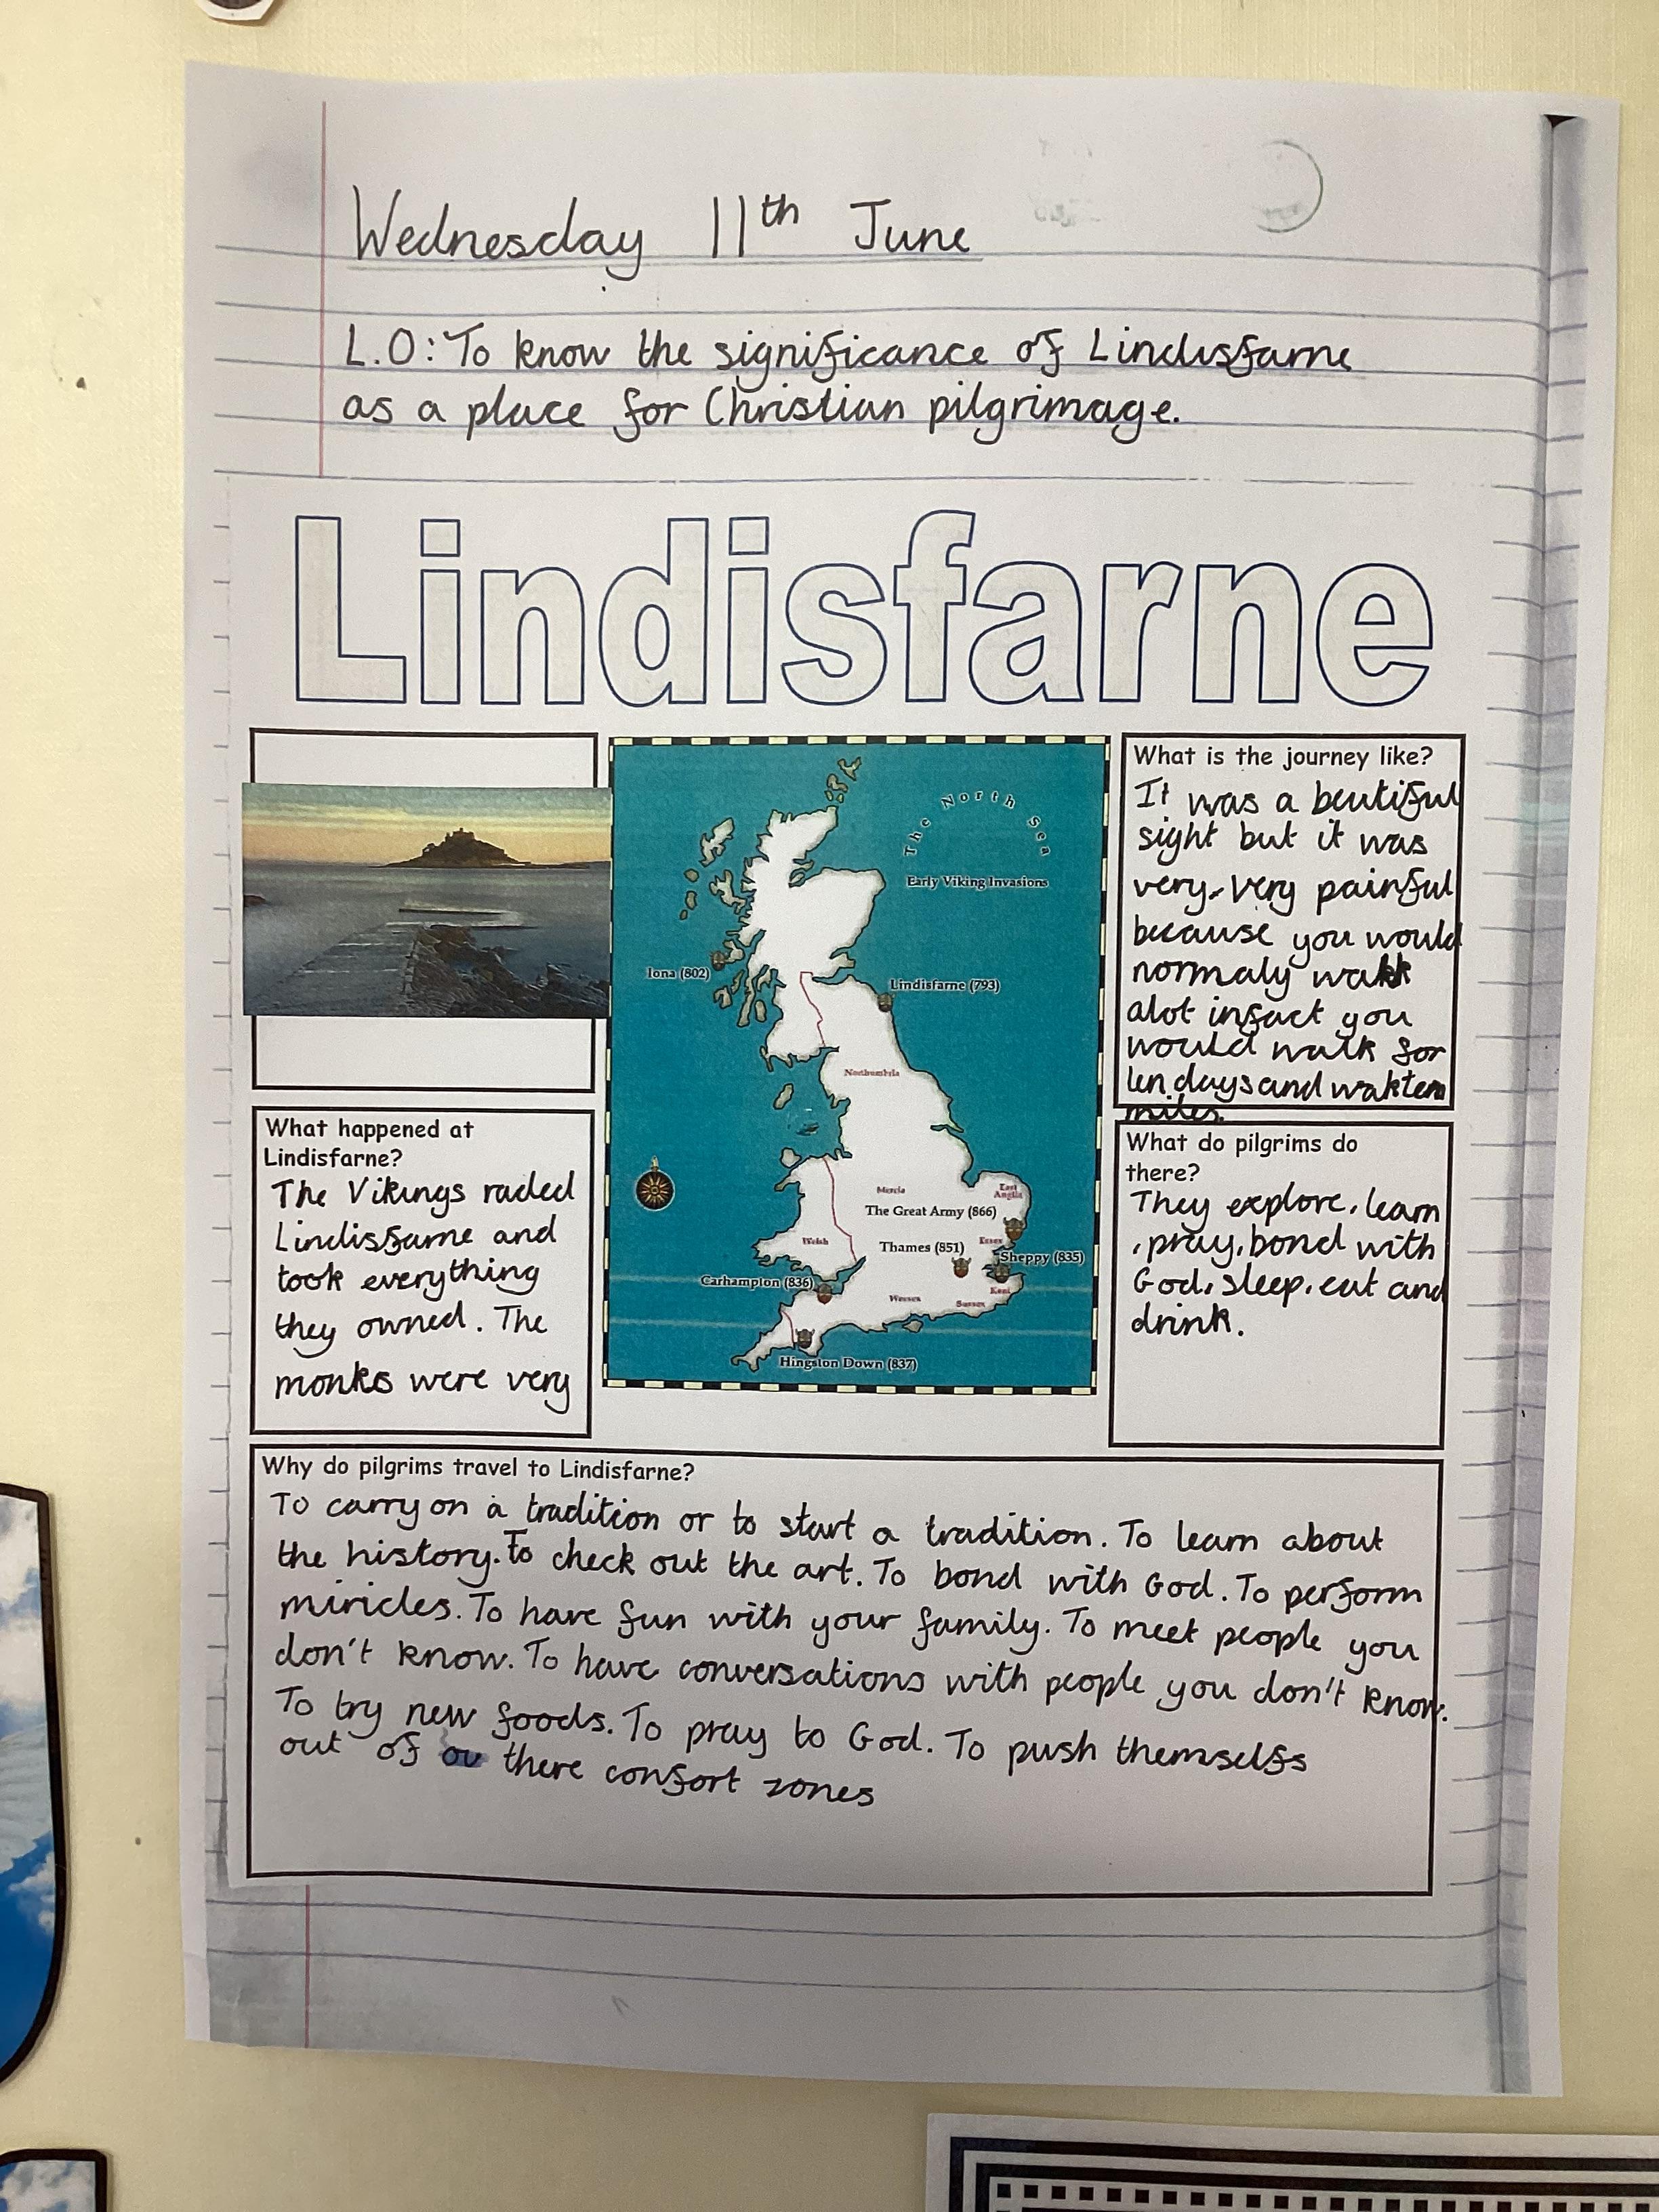 Wednesday 11th June
L.O: To know the significance of Lindisfarne
as a place for Christian pilgrimage.
Lindisfarne
The North Sea
Early Viking Invasions
Iona (802)
Lindisfarne (793)
Northumbria
Mercia
East
Anglia
The Great Army (866)
Welsh
Thames (851)
Essex
Sheppy (835)
Carhampton (836)
Wessex
Sussex
Kent
Hingston Down (837)
What is the journey like?
It was a beutiful
sight but it was
very, very painful
because you would
normaly walk
alot infact you
would walk for
ten days and walk ten
miles.
What happened at
Lindisfarne?
The Vikings raded
Lindisfarne and
took everything
they owned. The
monks were very
What do pilgrims do
there?
They explore, learn
, pray, bond with
God, sleep, eat and
drink.
Why do pilgrims travel to Lindisfarne?
To carry on a tradition or to start a tradition. To learn about
the history. To check out the art. To bond with God. To perform
miricles. To have fun with your family. To meet people you
don't know. To have conversations with people you don't know.
To try new foods. To pray to God. To push themselfs
out of there confort zones